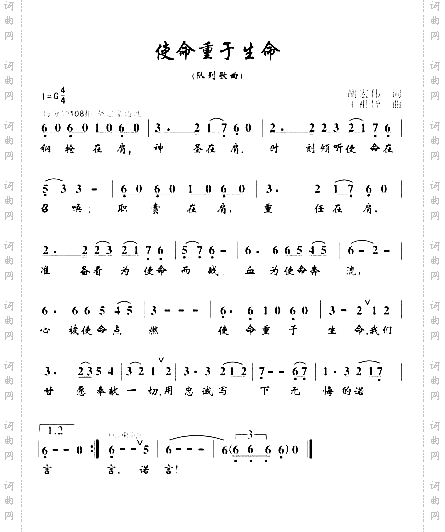 使命重于生命
(队列歌曲)
1=G 4/4
胡宏伟 词
曲
6060 1060 | 3· 2176 | 3· 223 2176
钢枪在肩，神圣在肩。时刻倾听使命在
5 3 3 - | 60 60 10 60 | 3· 2 17 60
召唤；职责在肩，重任在肩。
2· 223 2176 | 5 76 - | 6· 66545 | 6 - - -
准备着为使命而战，血为使命奔流，
6· 66545 | 3 - - - | 6· 1060 | 3 - 212
心被使命点燃 使命重于生命，我们
3· 2354 | 3212 | 3·323212 | 7 - - 67 | 1·3217
甘愿奉献一切，用忠诚写下无悔的诺
1.2
6 - - 0 :‖ 6 - - 5 | 6 - - - | 6(6666)0 ‖
言 言，诺言！
词曲网
词曲网
词曲网
词曲网
词曲网
词曲网
词曲网
词曲网
词曲网
词曲网